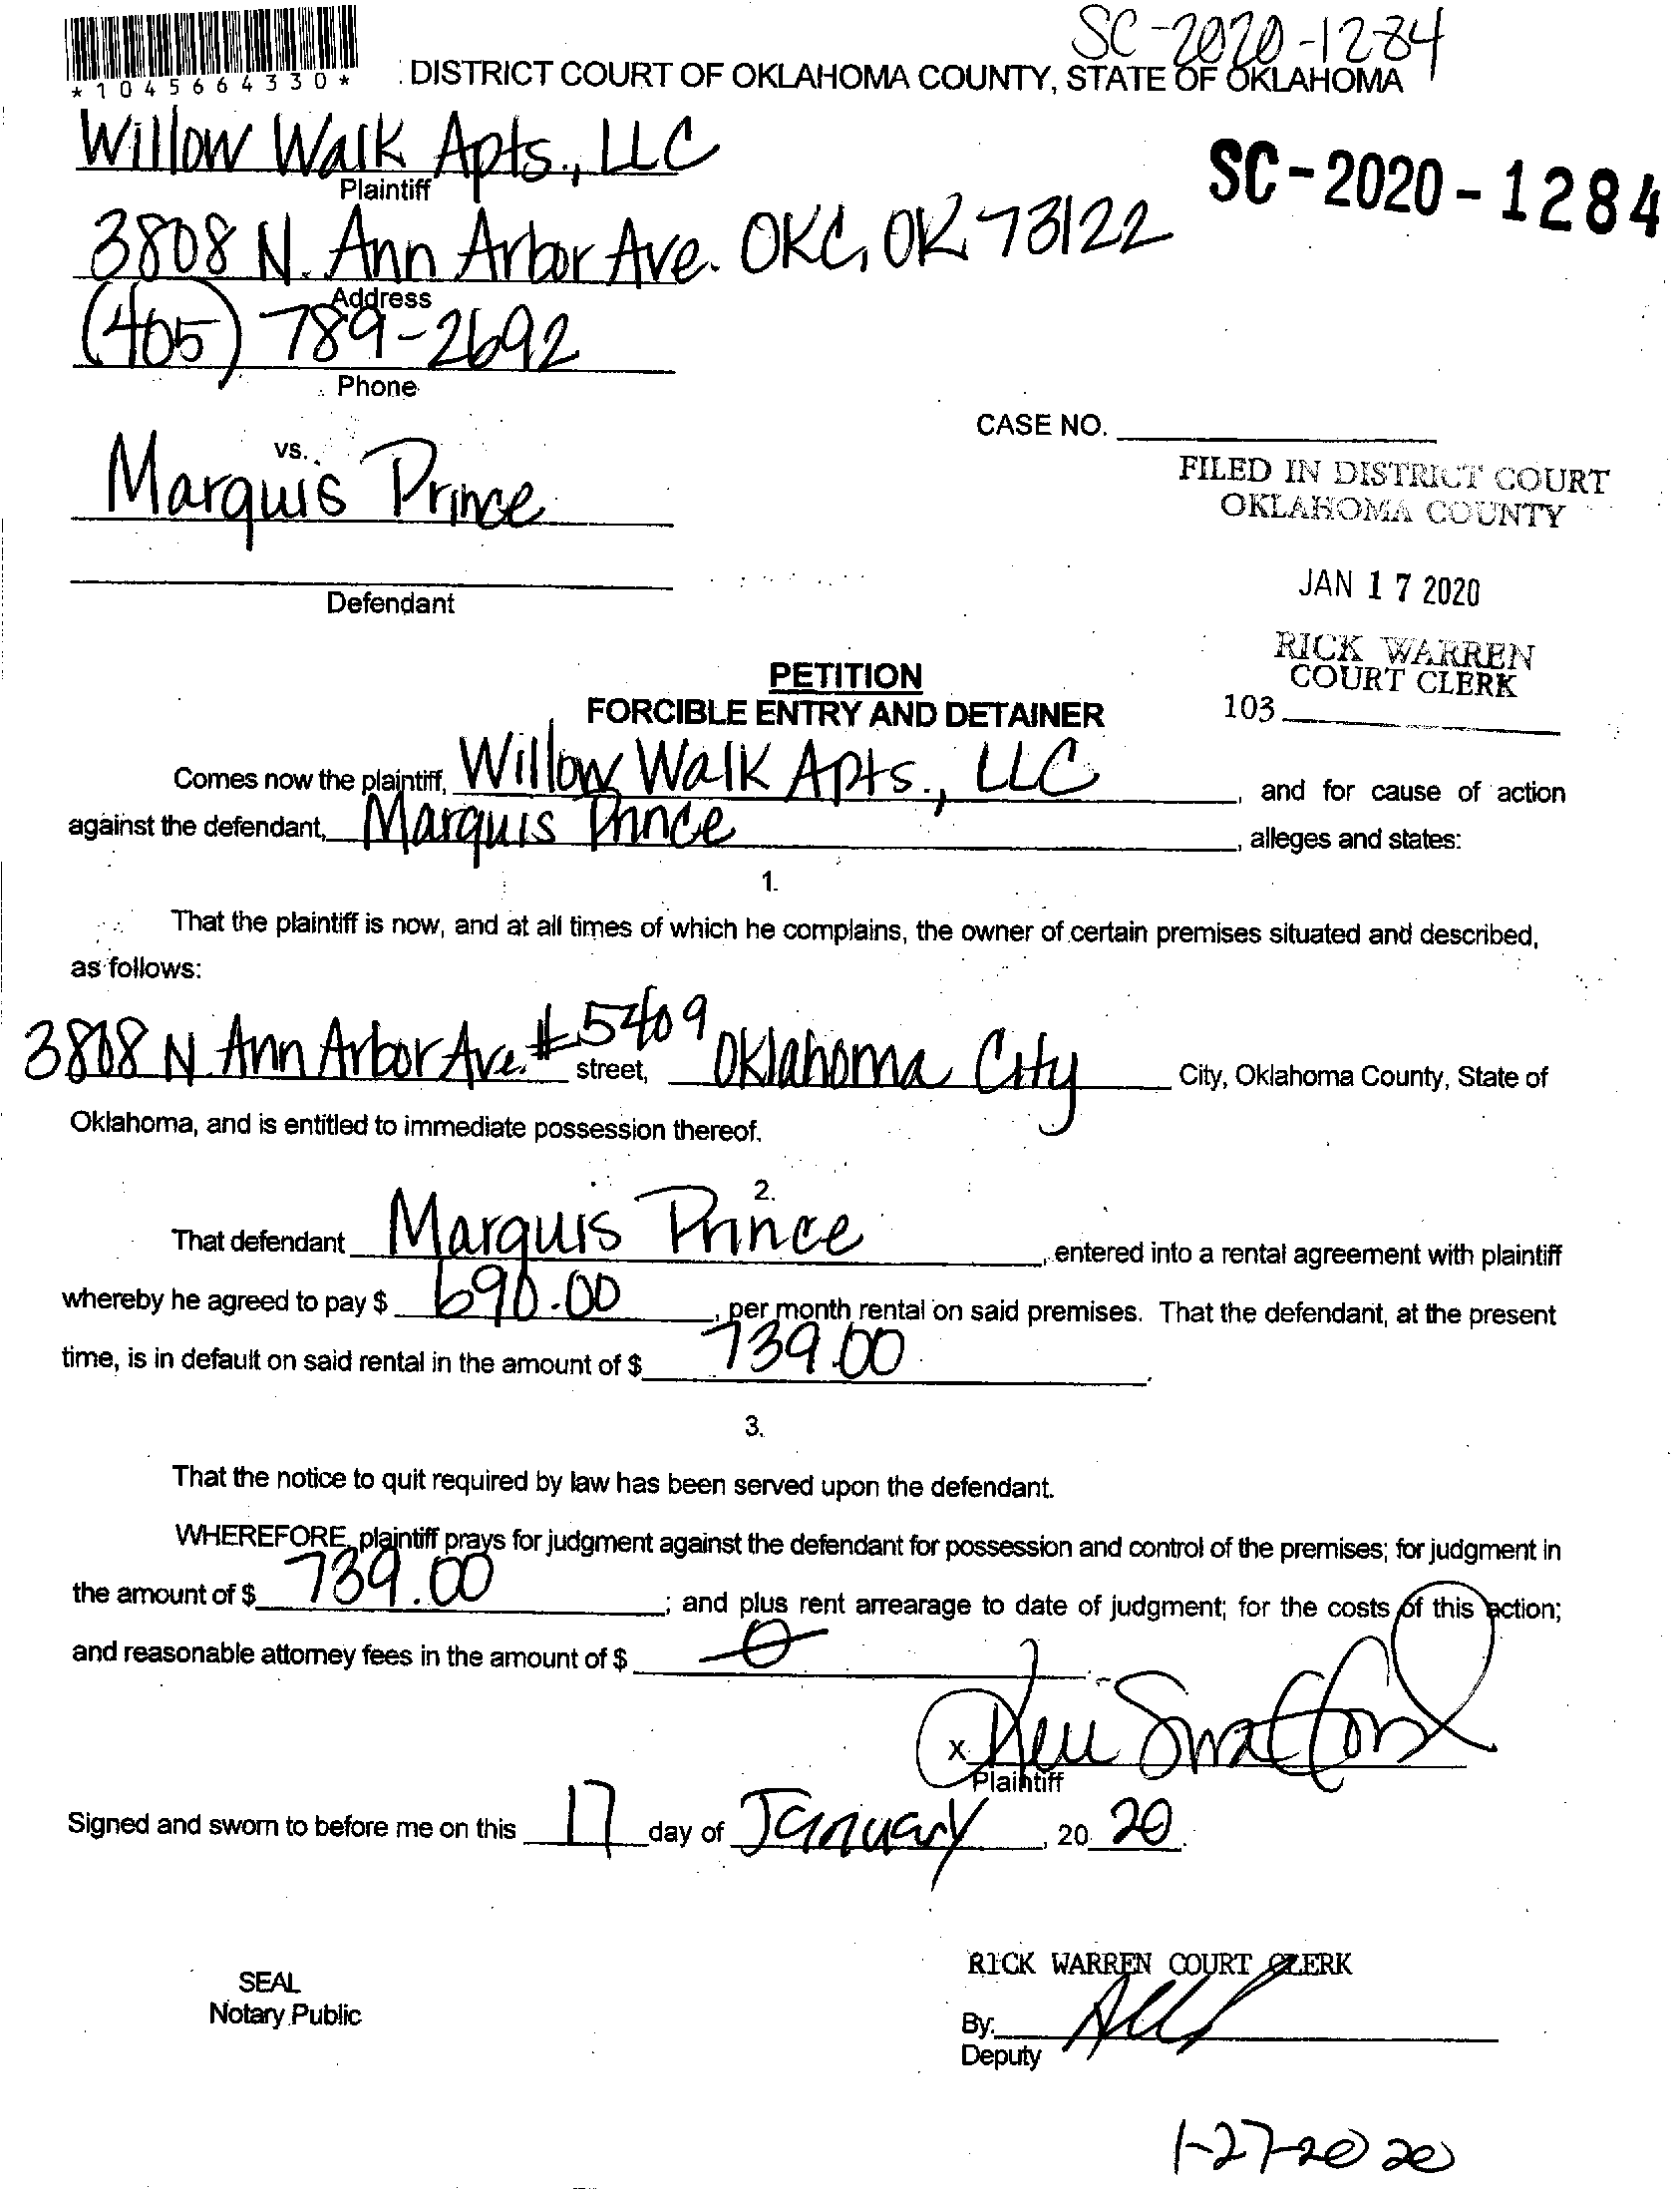 SC-2020-1284
*1045664330*
DISTRICT COURT OF OKLAHOMA COUNTY, STATE OF OKLAHOMA
Willow Walk Apts., LLC
Plaintiff
SC-2020-1284
3808 N. Ann Arbor Ave. OKC, OK 73122
Address
(405) 789-2692
Phone
CASE NO.
vs.
Marquis Prince
FILED IN DISTRICT COURT
OKLAHOMA COUNTY
Defendant
JAN 17 2020
RICK WARREN
COURT CLERK
103
PETITION
FORCIBLE ENTRY AND DETAINER
Comes now the plaintiff, Willow Walk Apts., LLC, and for cause of action
against the defendant, Marquis Prince, alleges and states:
1.
That the plaintiff is now, and at all times of which he complains, the owner of certain premises situated and described,
as follows:
3808 N. Ann Arbor Ave. #5409 street, Oklahoma City City, Oklahoma County, State of
Oklahoma, and is entitled to immediate possession thereof.
2.
That defendant Marquis Prince, entered into a rental agreement with plaintiff
whereby he agreed to pay $ 690.00, per month rental on said premises. That the defendant, at the present
time, is in default on said rental in the amount of $ 739.00.
3.
That the notice to quit required by law has been served upon the defendant.
WHEREFORE, plaintiff prays for judgment against the defendant for possession and control of the premises; for judgment in
the amount of $ 739.00; and plus rent arrearage to date of judgment; for the costs of this action;
and reasonable attorney fees in the amount of $ 0
x
Plaintiff
Signed and sworn to before me on this 17 day of January, 20 20.
RICK WARREN COURT CLERK
SEAL
Notary Public
By:
Deputy
1-27-2020